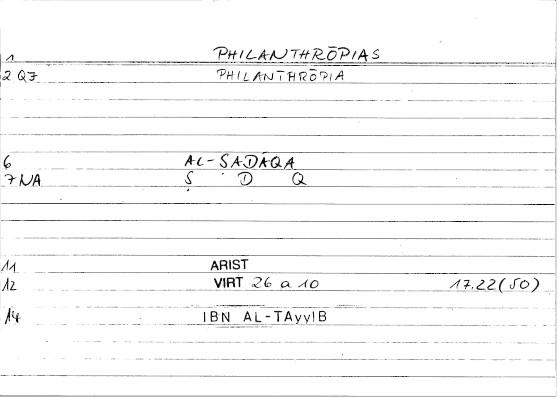 1 PHILANTHRŌPIAS
2 Q7 PHILANTHRŌPIA
6 AL-ṢADĀQA
7 NA Ṣ D Q
11 ARIST
12 VIRT 26 a 10 17.22(50)
14 IBN AL-TAyyIB